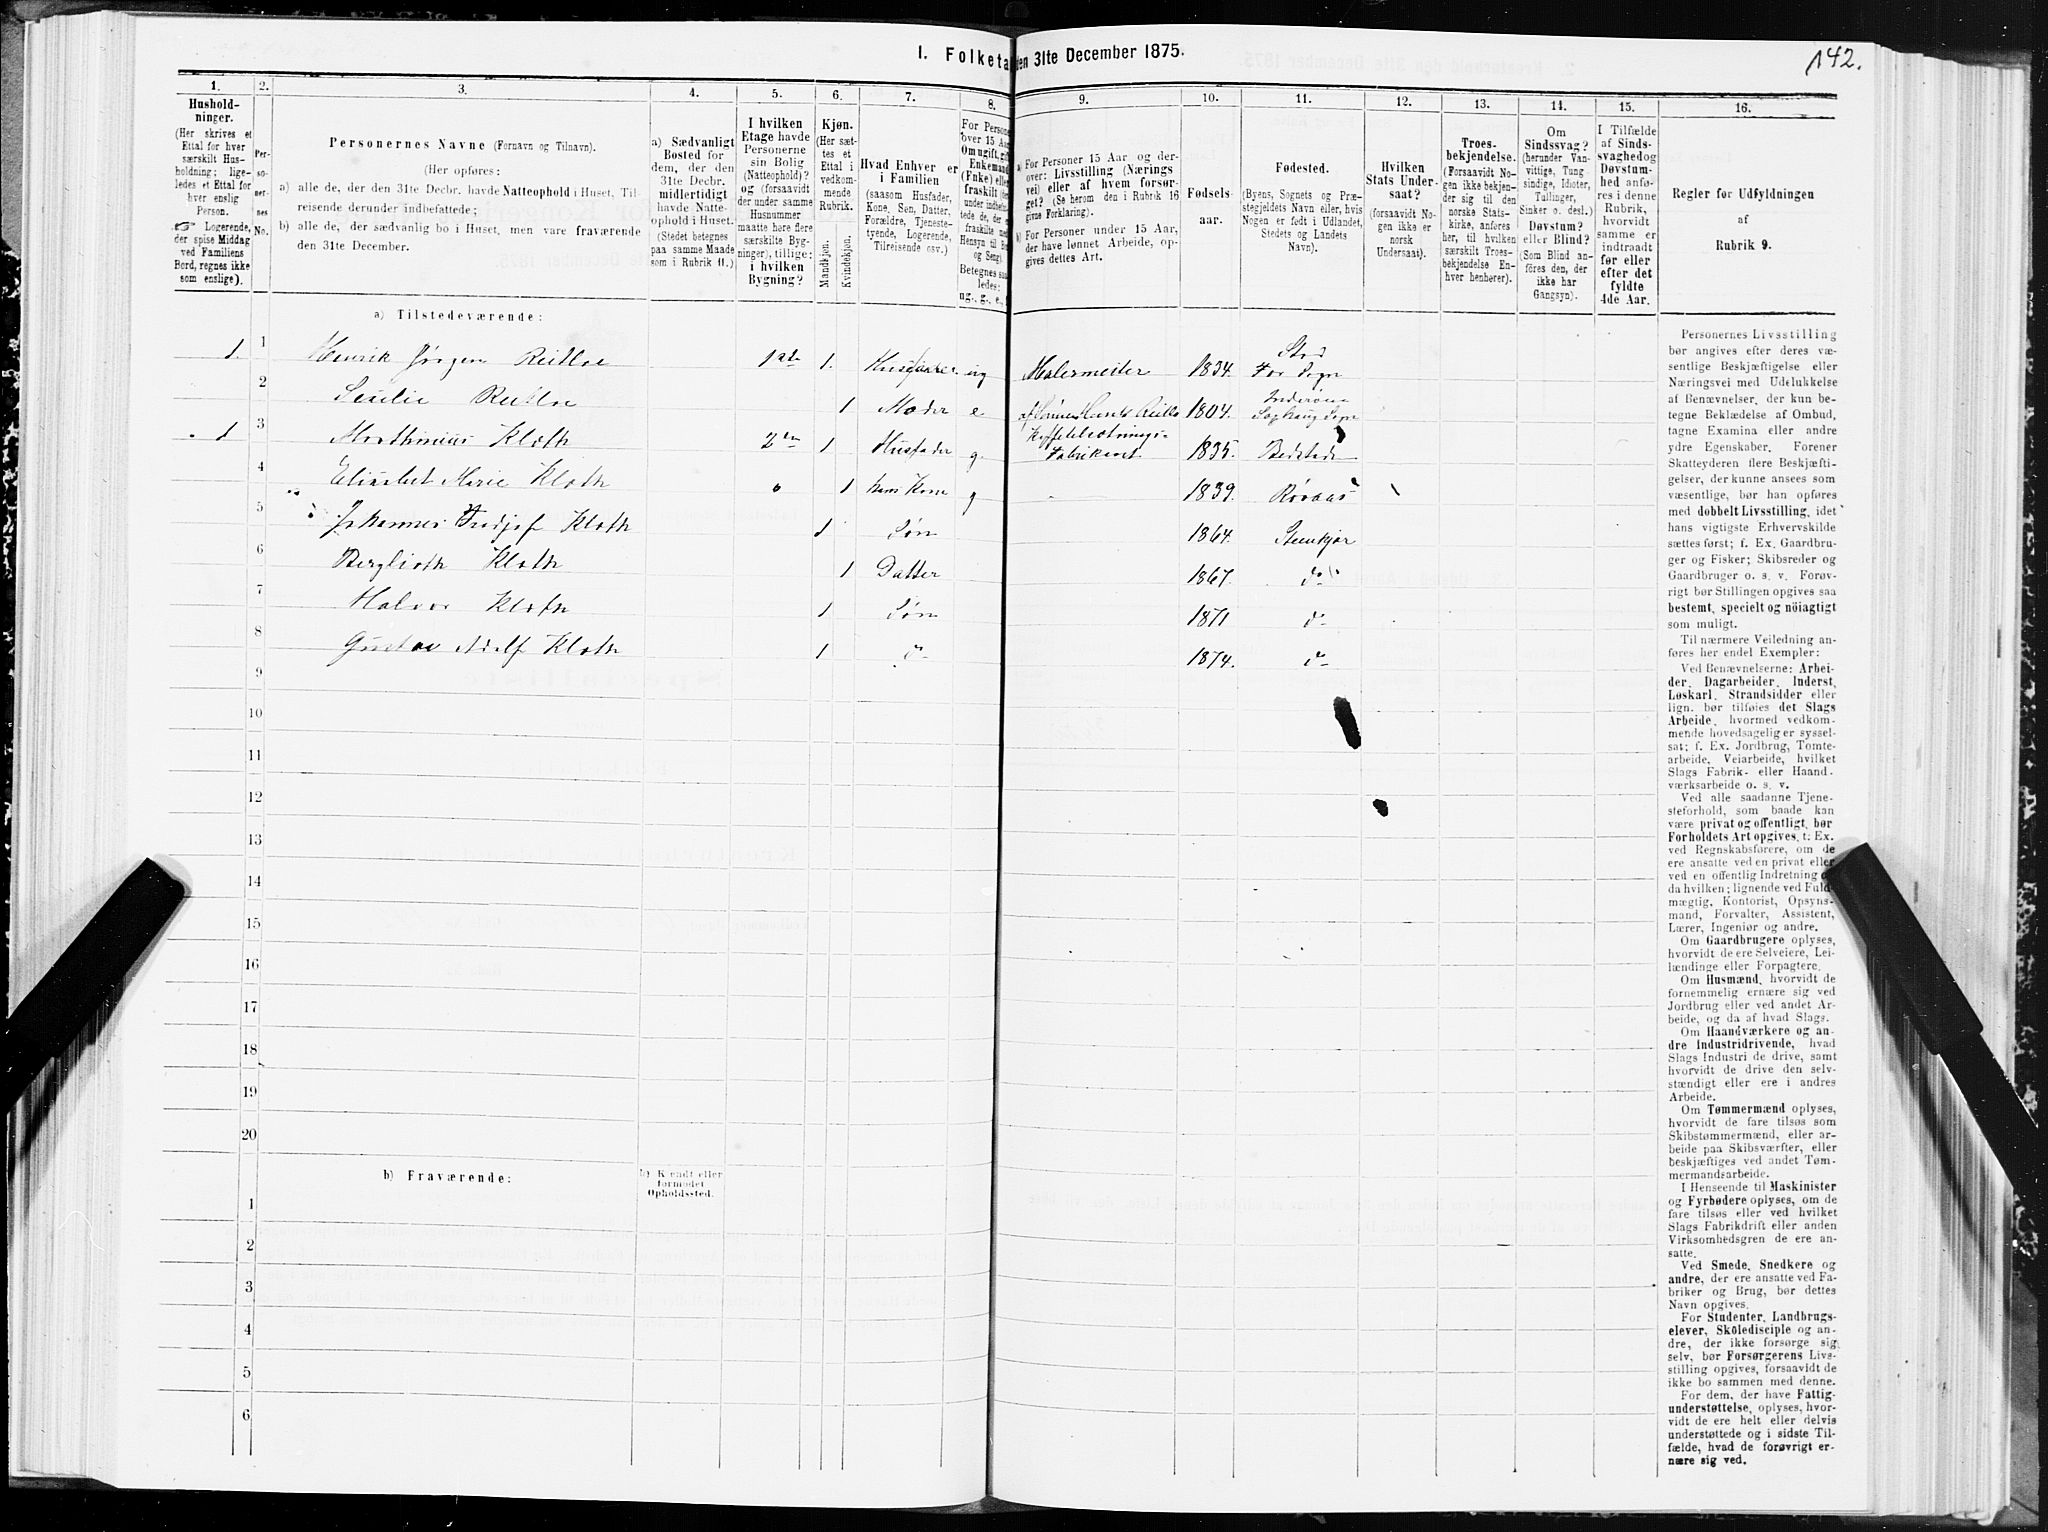 142.
I. Folketa den 31te December 1875.
1. 2. 3. 4. 5. 6. 7. 8. 9. 10. 11. 12. 13. 14. 15. 16.
Hushold-
ninger.
(Her skrives et
Ettal for hver
særskilt Hus-
holdning; lige-
ledes et Ettal for
hver enslig
Person.
☞ Logerende,
der spise Middag
ved Familiens
Bord, regnes ikke
som enslige).
Per-
so-
ner-
nes
No.
Personernes Navne (Fornavn og Tilnavn).
(Her opføres:
a) alle de, der den 31te Decbr. havde Natteophold i Huset, Til-
reisende derunder indbefattede;
b) alle de, der sædvanlig bo i Huset, men vare fraværende
den 31te December.
a) Sædvanligt
Bosted for
dem, der den
31te Decbr.
midlertidigt
havde Natte-
ophold i Huset.
(Stedet betegnes
paa samme Maade
som i Rubrik 11.)
I hvilken
Etage havde
Personerne
sin Bolig
(Natteophold)?
og (forsaavidt
der under samme
Husnummer
maatte høre flere
særskilte Byg-
ninger), tillige:
i hvilken
Bygning?
Kjøn.
(Her sæt-
tes et
Ettal i
vedkom-
mende
Rubrik.
Mandkjøn.
Kvindekjøn.
Hvad Enhver er
i Familien
(saasom Husfader,
Kone, Søn, Datter,
Forældre, Tjeneste-
tyende, Logerende,
Tilreisende osv.)
For Persone
over 15 Aa
Om ugift, gif
Enkemand
(Fnke) elle
fraskilt (de
under indbefat-
tede de, de
fraskilte med
Hensyn til B
og Seng).
Betegnes saa
ledes:
ug., g., e.,
a) For Personer 15 Aar og der-
over: Livsstilling (Nærings
vei) eller af hvem forsør-
get? (Se herom den i Rubrik 16
givne Forklaring).
b) For Personer under 15 Aar,
der have lønnet Arbeide, op-
gives dettes Art.
Fødsels-
aar.
Fødested.
(Byens, Sognets og Præ-
stegjeldets Navn eller, hvis
Nogen er født i Udlandet,
Stedets og Landets
Navn).
Hvilken
Stats Under-
saat?
(forsaavidt No-
gen ikke er
norsk
Undersaat).
Troes-
bekjendelse.
(Forsaavidt No-
gen ikke bekjen-
der sig til den
norske Stats-
kirke, anføres
her, til hvilken
særskilt Troes-
bekjendelse En-
hver henhører).
Om
Sindssvag?
(herunder Van-
vittige, Tung-
sindige, Idioter,
Tullinger,
Sinker o. desl.)
Døvstum?
eller Blind?
(Som Blind an-
føres den, der
ikke har
Gangsyn).
I Tilfælde
af Sinds-
svaghed og
Døvstum-
hed anfø-
res i denne
Rubrik,
hvorvidt
samme er
indtraadt
før eller
efter det
fyldte
4de Aar.
Regler før Udfyldningen
af
Rubrik 9.
a) Tilstedeværende:
1. 1 Henrik Jørgen 1ste 1. Husfader ug Malermester 1834. Stod For Sogn
2 1 Moder e 1804. Inderøen Sogn
1 3 Marthinius Kloth 2den 1 Husfader g. Fabrikant 1835. Bedstade
4 Elisabet Marie Kloth 1 hans Kone g 1839. Røraas
5 Johannes Fredjof Kloth 1 Søn 1864. Stenkjær
6 Berglioth Kloth 1 Datter 1867. do
7 Halvor Kloth 1 Søn 1871 do
8 Gustav Adolf Kloth 1 do 1874. do
9
10
11
12
13
14
15
16
17
18
19
20
b) Fraværende:
b) Kjendt eller
formodet
Opholdssted.
1
2
3
4
5
6
Personernes Livsstilling
bør angives efter deres væ-
sentlige Beskjæftigelse eller
Næringsvei med Udelukkelse
af Benævnelser, der kun be-
tegne Beklædelse af Ombud,
tagne Examina eller andre
ydre Egenskaber. Forener
Skatteyderen flere Beskjæfti-
gelser, der kunne ansees som
væsentlige, bør han opføres
med dobbelt Livsstilling, idet
hans vigtigste Erhvervskilde
sættes først; f. Ex. Gaardbru-
ger og Fisker; Skibsreder og
Gaardbruger o. s. v. Forøv-
rigt bør Stillingen opgives saa
bestemt, specielt og nöiagtigt
som muligt.
Til nærmere Veiledning an-
føres her endel Exempler:
Ved Benævnelserne: Arbei-
der, Dagarbeider, Inderst,
Løskarl, Strandsidder eller
lign. bør tilføies det Slags
Arbeide, hvormed vedkom-
mende hovedsagelig er syssel-
sat; f. Ex. Jordbrug, Tomte-
arbeide, Veiarbeide, hvilket
Slags Fabrik- eller Haand-
værksarbeide o. s. v.
Ved alle saadanne Tjene-
steforhold, som baade kan
være privat og offentligt, bør
Forholdets Art opgives, t. Ex.
ved Regnskabsførere, om de
ere ansatte ved en privat eller
ved en offentlig Indretning
da hvilken; lignende ved Fuld-
mægtig, Kontorist, Opsyns-
mand, Forvalter, Assistent,
Lærer, Ingeniør og andre.
Om Gaardbrugere oplyses,
hvorvidt de ere Selveiere, Lei-
lændinge eller Forpagtere.
Om Husmænd, hvorvidt de
fornemmelig ernære sig ved
Jordbrug eller ved andet Ar-
beide, og da af hvad Slags.
Om Haandværkere og an-
dre Industridrivende, hvad
Slags Industri de drive, samt
hvorvidt de drive den selv-
stændigt eller ere i andres
Arbeide.
Om Tømmermænd oplyses,
hvorvidt de fare tilsøs som
Skibstømmermænd, eller ar-
beide paa Skibsværfter, eller
beskjæftiges ved andet Tøm-
mermandsarbeide.
I Henseende til Maskinister
og Fyrbødere oplyses, om de
fare tilsøs eller ved hvilket
Slags Fabrikdrift eller anden
Virksomhedsgren de ere an-
satte.
Ved Smede, Snedkere og
andre, der ere ansatte ved Fa-
briker og Brug, bør dettes
Navn opgives.
For Studenter, Landbrugs-
elever, Skoledisciple og an-
dre, der ikke forsørge sig
selv, bør Forsørgerens Livs-
stilling opgives, forsaavidt de
ikke bo sammen med denne.
For dem, der have Fattig-
understøttelse, oplyses, hvor-
vidt de ere helt eller delvis
understøttede og i sidste Til-
fælde, hvad de forøvrigt er-
nære sig ved.